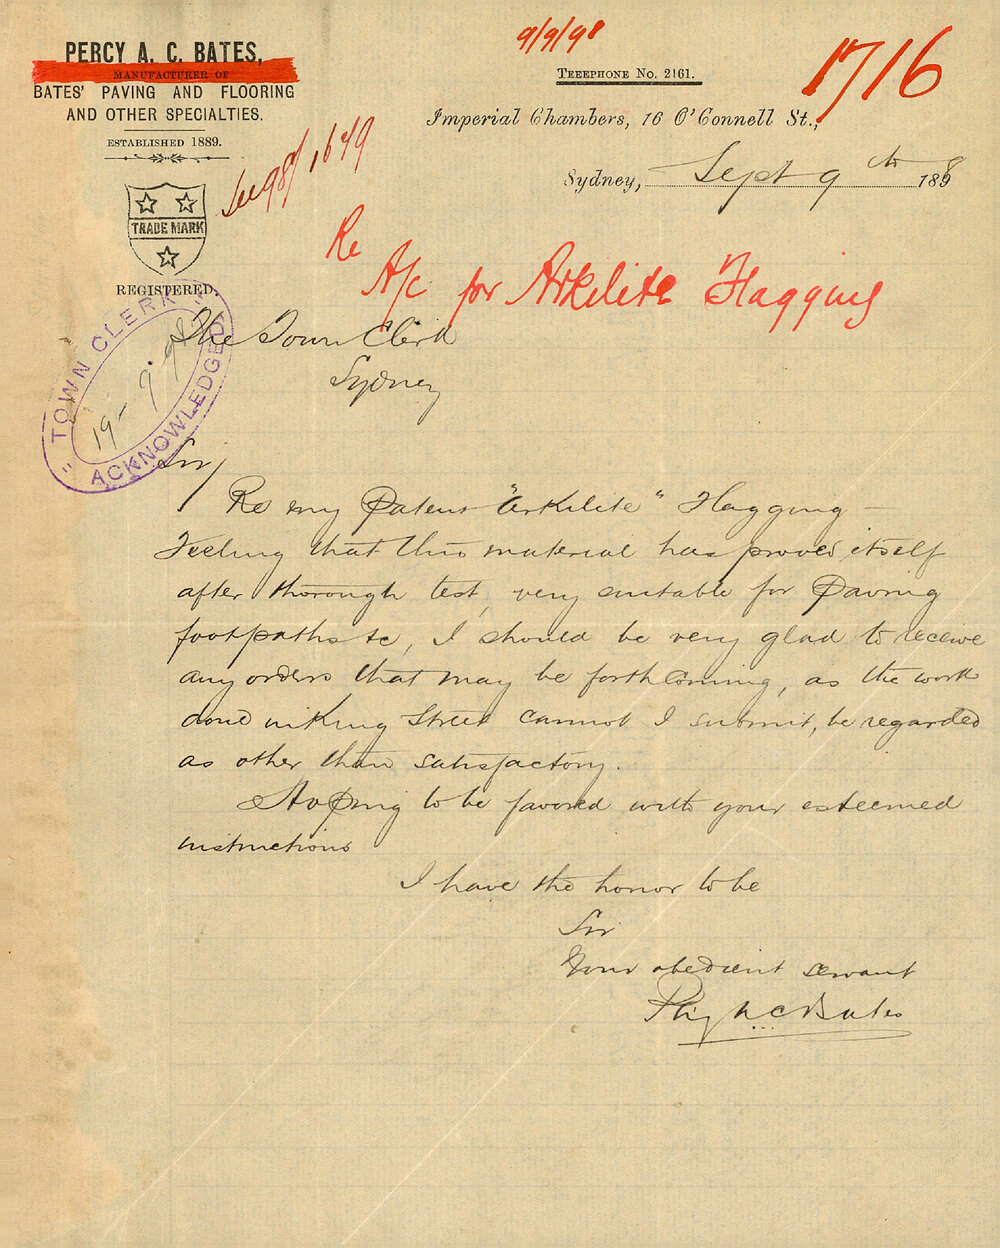 9/9/98
1716
PERCY A. C. BATES,
MANUFACTURER OF
BATES' PAVING AND FLOORING
AND OTHER SPECIALTIES.
ESTABLISHED 1889.
TRADE MARK
REGISTERED.
TEEEPHONE No. 2161.
Imperial Chambers, 16 O'Connell St.,
Sydney, Sept 9th 1898
See 98/1649
Re
A/c for Arkilite Flagging
"TOWN CLERK"
19-9-98
ACKNOWLEDGED
The Town Clerk
Sydney
Sir/
Re my Patent "Arkilite" Flagging —
Feeling that this material has proved itself
after thorough test, very suitable for Paving
footpaths &c, I should be very glad to receive
any orders that may be forthcoming, as the work
done in King Street cannot I submit, be regarded
as other than satisfactory.
Hoping to be favored with your esteemed
instructions
I have the honor to be
Sir
Your obedient servant
Percy A C Bates